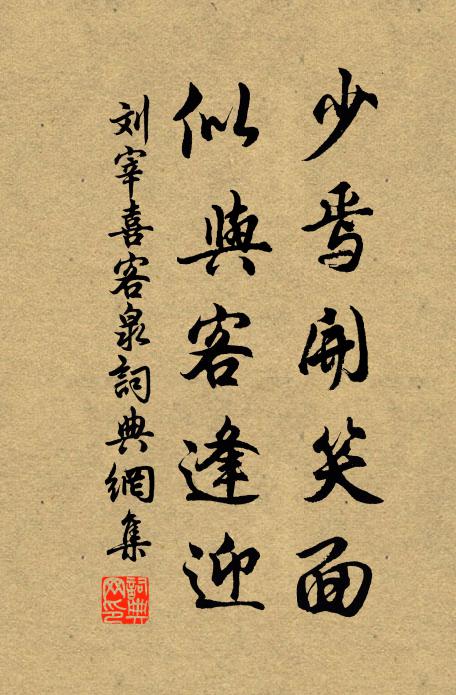 少焉開笑面
似與客逢迎
刘宰喜客泉詞典網集
詞典网印